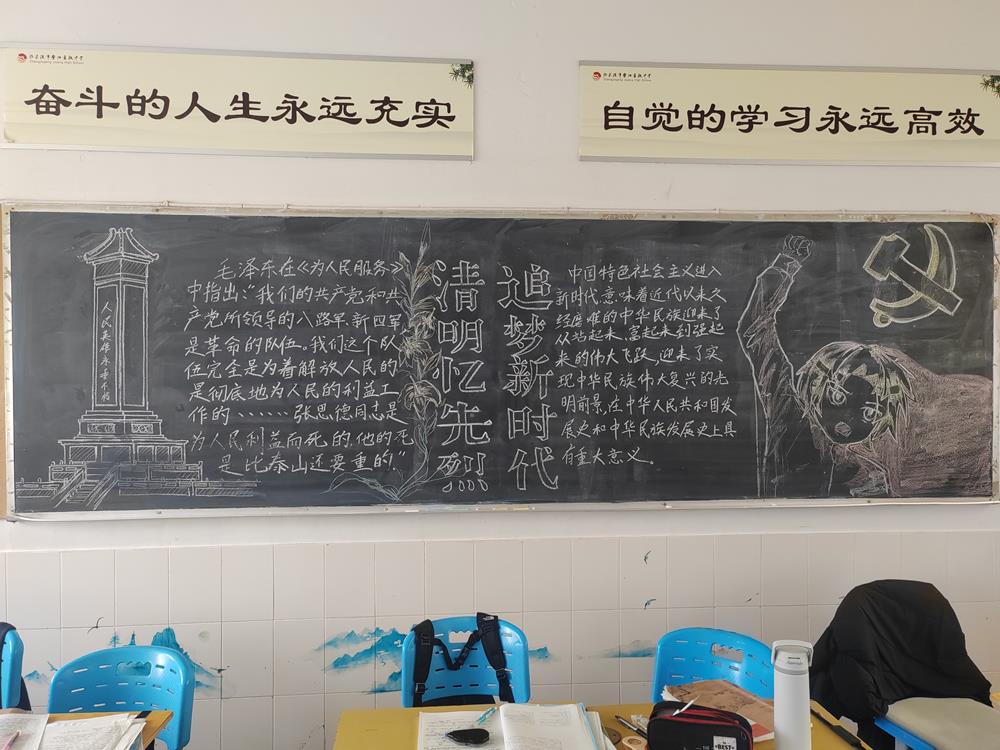 奋斗的人生永远充实
自觉的学习永远高效
人民英雄永垂不朽
毛泽东在《为人民服务》
中指出:“我们的共产党和共
产党所领导的八路军、新四军,
是革命的队伍。我们这个队
伍完全是为着解放人民的
是彻底地为人民的利益工
作的······张思德同志是
为人民利益而死的,他的死
是比泰山还要重的。”
清明忆先烈
追梦新时代
中国特色社会主义进入
新时代,意味着近代以来久
经磨难的中华民族迎来了
从站起来、富起来到强起
来的伟大飞跃,迎来了实
现中华民族伟大复兴的光
明前景,在中华人民共和国发
展史和中华民族发展史上具
有重大意义。
BEST